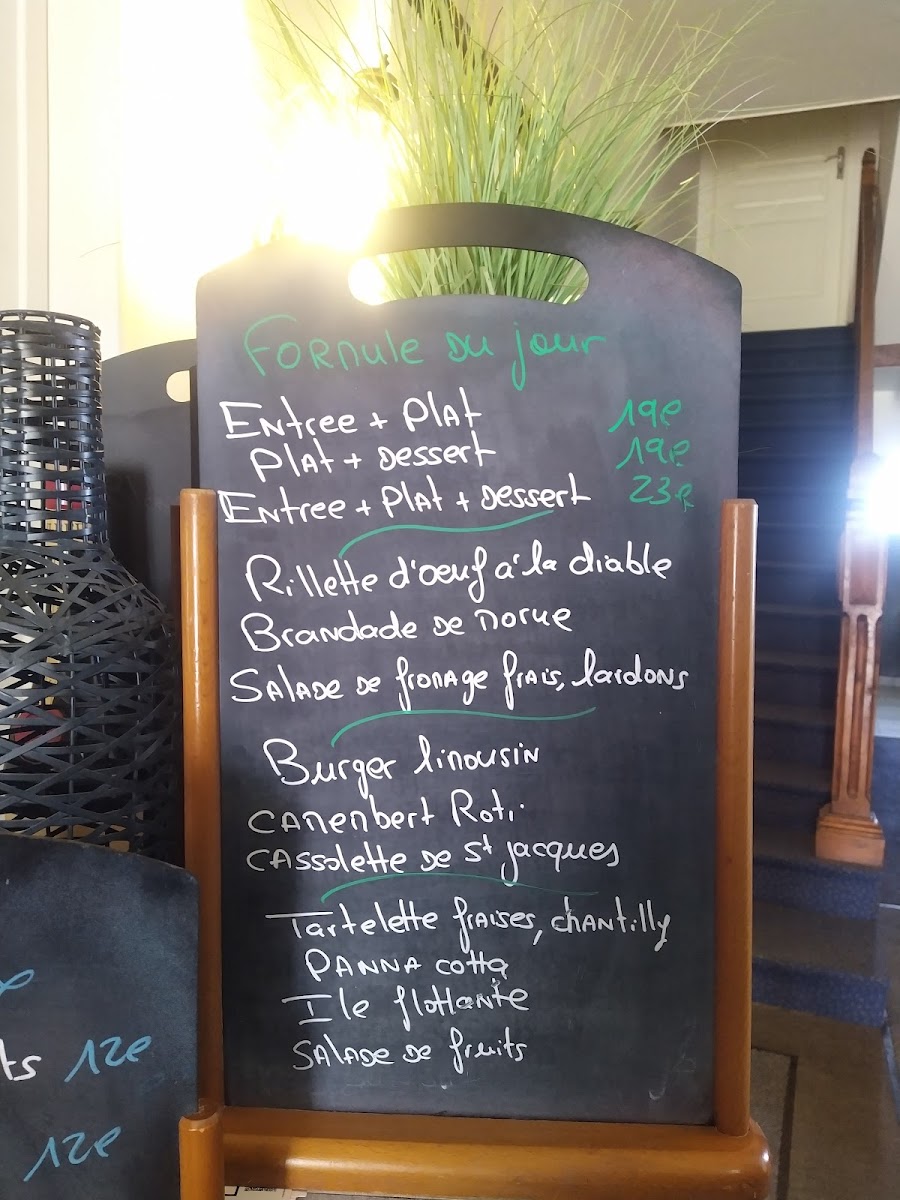 Formule du jour
Entree + Plat 19e
Plat + Dessert 19e
Entree + Plat + Dessert 23e
Rillette d'œuf à la diable
Brandade de morue
Salade de fromage frais, lardons
Burger limousin
Camenbert Roti
Cassolette de St jacques
Tartelette fraises, chantilly
Panna cotta
Ile flottante
Salade de fruits
ts 12e
12e